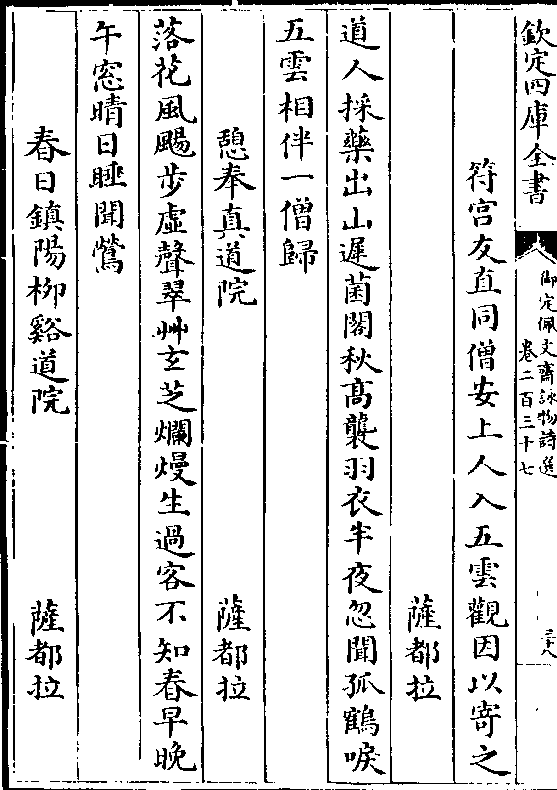 欽定四庫全書
御定佩文齋詠物詩選
卷二百三十七
三十八
符宫友直同僧安上人入五雲觀因以寄之
薩都拉
道人採藥出山遲菌閣秋髙襲羽衣半夜忽聞孤鶴唳
五雲相伴一僧歸
憩奉真道院
薩都拉
落花風颺步虛聲翠艸玄芝爛熳生過客不知春早晚
午窓晴日睡聞鶯
春日鎮陽柳谿道院
薩都拉